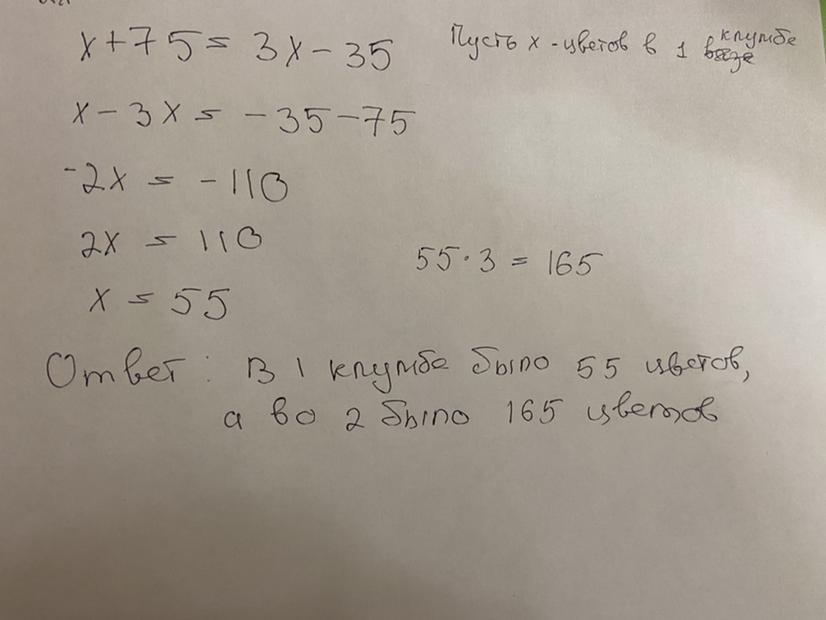 x+75= 3x-35
Пусть x - цветов в 1 клумбе
x-3x = -35-75
-2x = -110
2x = 110
55·3 = 165
x = 55
Ответ: В 1 клумбе было 55 цветов,
а во 2 было 165 цветов